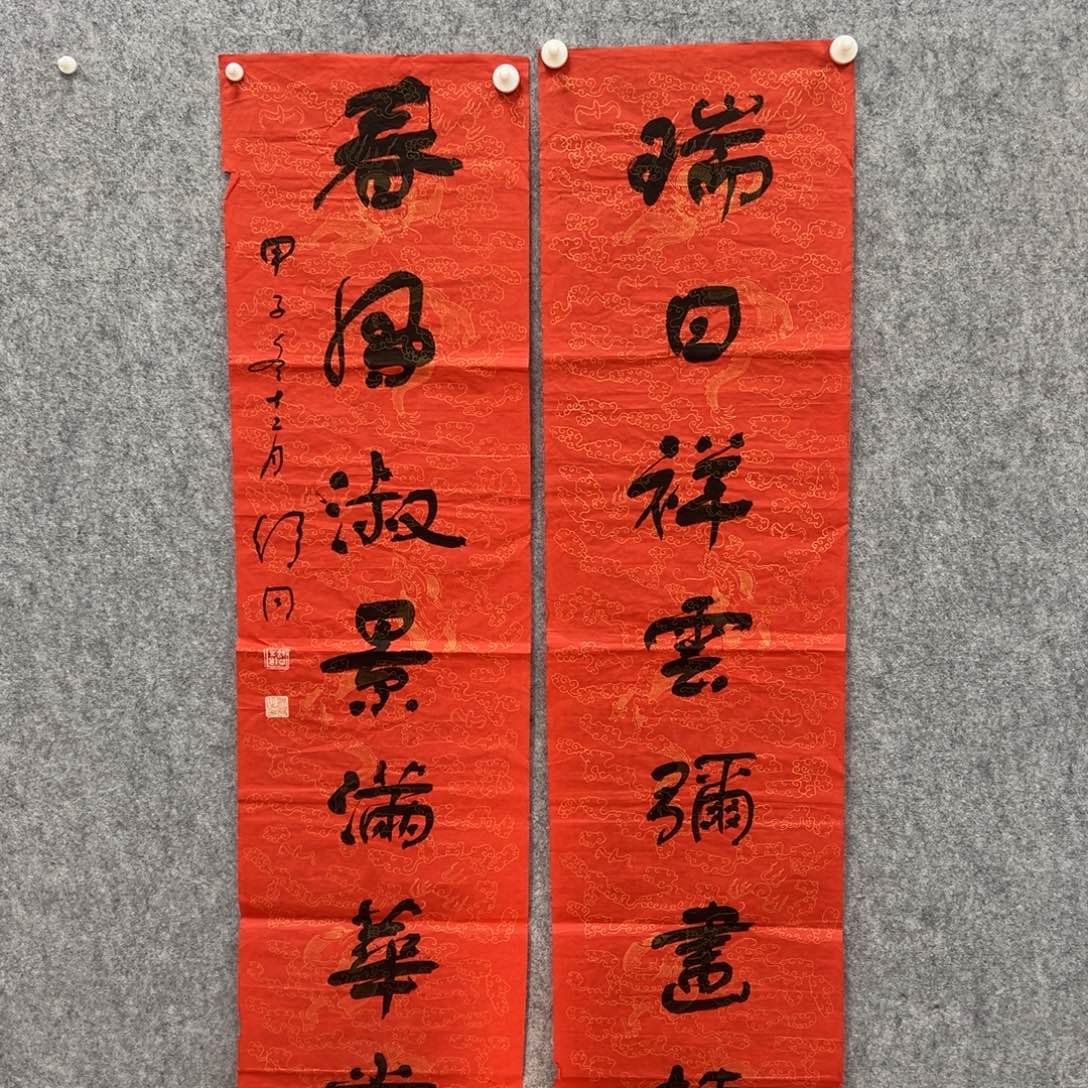 瑞日祥雲彌畫
春風淑景滿華
甲子冬十二月 舒同